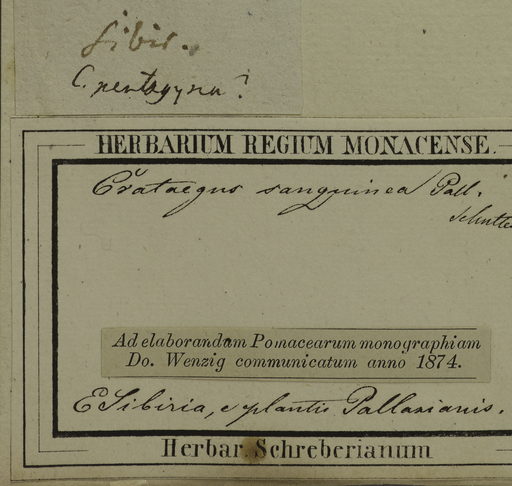 Sibir.
C. pentagyna?
HERBARIUM REGIUM MONACENSE.
Crataegus sanguinea Pall.
Ad elaborandam Pomacearum monographiam
Do. Wenzig communicatum anno 1874.
E Sibiria, e plantis Pallasianis.
Herbar. Schreberianum